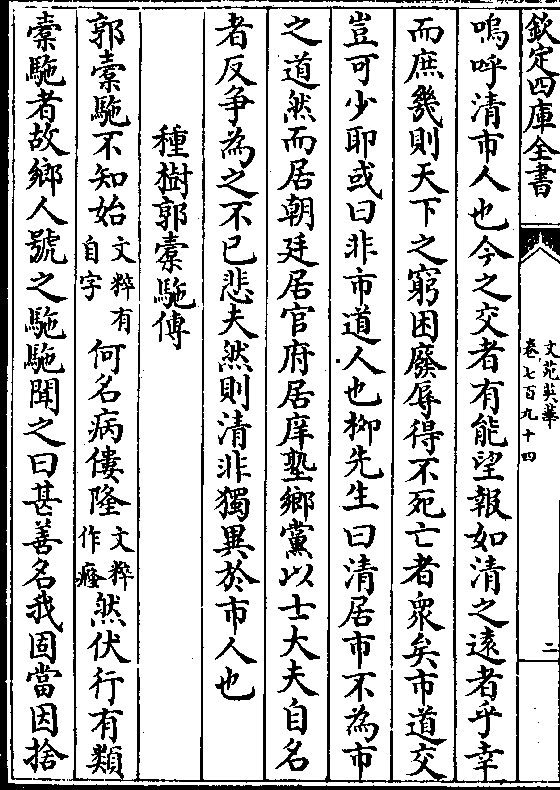 欽定四庫全書
文苑英華
卷七百九十四
二
嗚呼清市人也今之交者有能望報如清之遠者乎幸
而庶幾則天下之窮困廢辱得不死亡者衆矣市道交
豈可少耶或曰非市道人也栁先生曰清居市不為市
之道然而居朝廷居官府居庠塾鄉黨以士大夫自名
者反爭為之不已悲夫然則清非獨異於市人也
種樹郭橐駞傳
郭橐駞不知始文粹有自字何名病僂隆文粹作癃然伏行有類
橐駞者故鄉人號之駞駞聞之曰甚善名我固當因捨